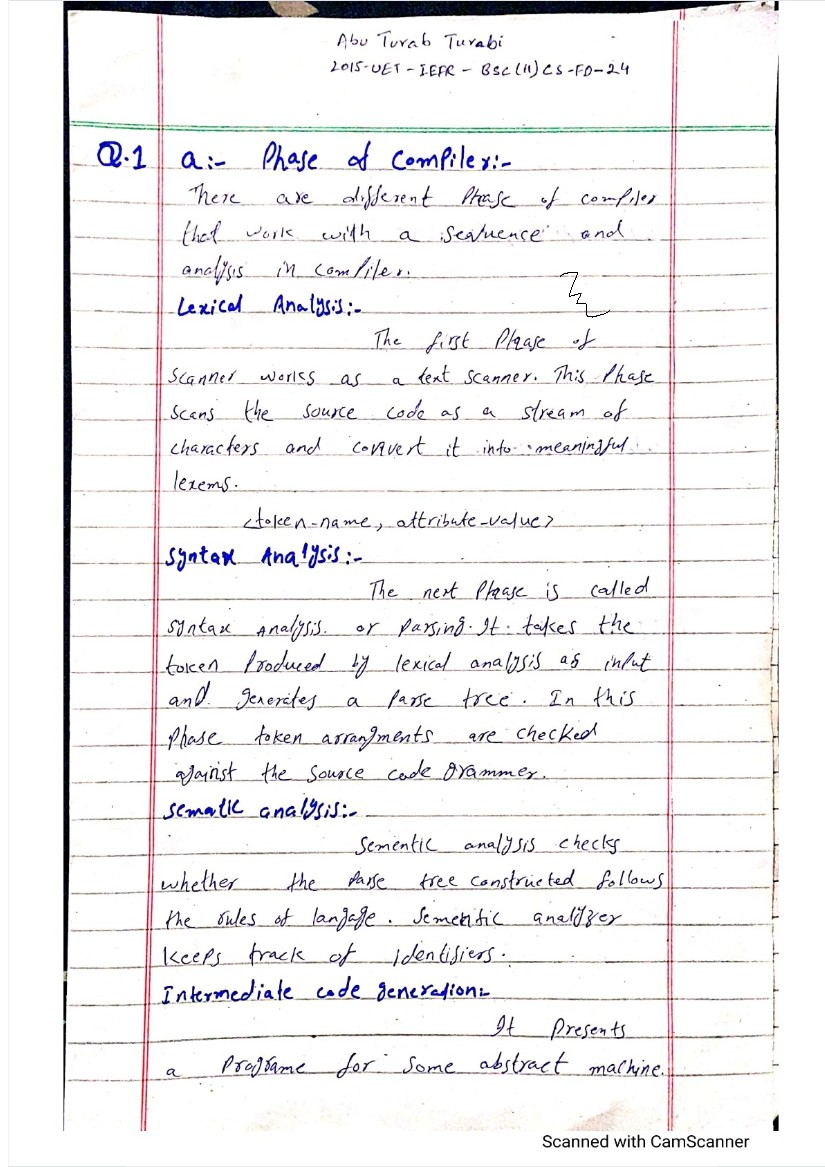 Abu Turab Turabi
2015-UET-IEFR-BSC(11)CS-FD-24
Q.1 a:- Phase of Compiler:-
There are different Phase of compiler
that work with a sequence and
analysis in Compiler.
Lexical Analysis:-
The first Phase of
scanner works as a text scanner. This Phase
scans the source code as a stream of
characters and convert it into meaningful
lexems.
<token-name, attribute-value>
Syntax Analysis:-
The next Phase is called
Syntax Analysis or Parsing. It takes the
token Produced by lexical analysis as input
and generates a Parse tree. In this
Phase token arrangments are checked
against the source code Grammer.
Sematic analysis:-
Sementic analysis checks
whether the Parse tree constructed follows
the rules of langage. Sementic analyzer
keeps track of identifiers.
Intermediate code generation:-
It Presents
a Programe for some abstract machine.
Scanned with CamScanner